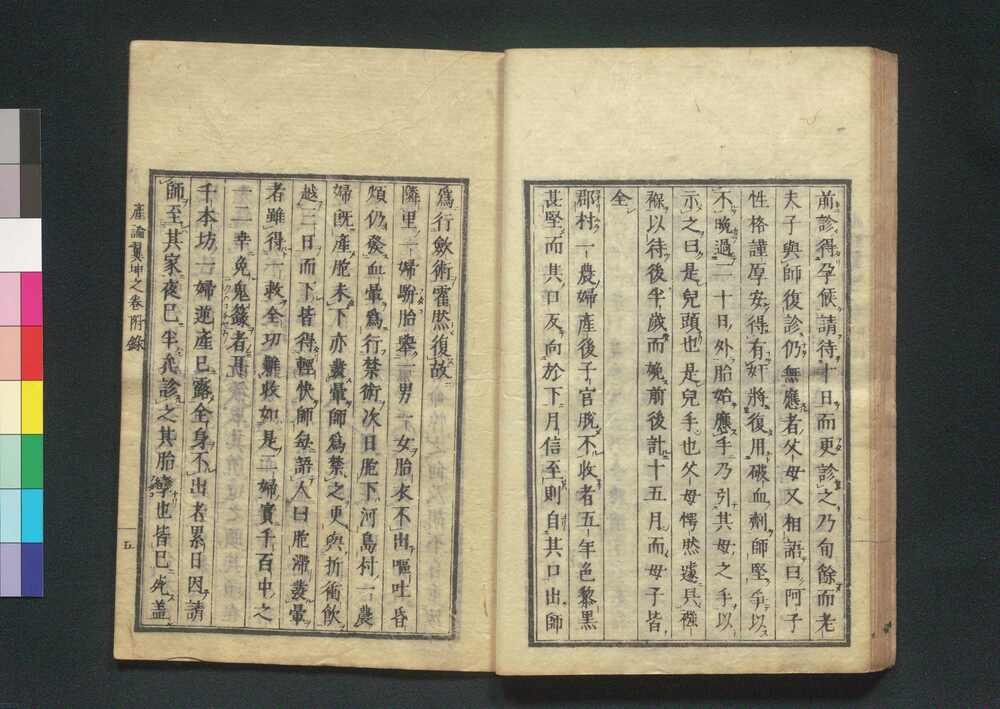 前診得孕候請待十日而更診之乃旬餘而老
夫子與師復診仍無應者父母又相語曰阿子
性格謹厚安得有奸將復用破血劑師堅爭以
不晩過二十日外胎始應手乃引其母之手以
示之曰是兒頭也是兒手也父母愕然遽具襁
褓以待後半歲而娩前後計十五月而母子皆
全
郡村一農婦產後子宮脫不收者五年色黎黑
甚堅而其口反向於下月信至則自其口出師
爲行歛術霍然復故
隣里一婦駢胎擧一男一女胎衣不出嘔吐昏
煩仍發血暈爲行禁術次日胞下河島村一農
婦旣產胞未下亦發暈師爲禁之更與折衝飲
越三日而下皆得輕快師每語人曰胞滯發暈
者雖得一救全功難收如是二婦實千百中之
十二幸免鬼籙者耳
千本坊一婦逆產已露全身不出者累日因請
師至其家夜已半矣診之其胎孿也皆已死蓋
產論翼坤之卷附錄
五